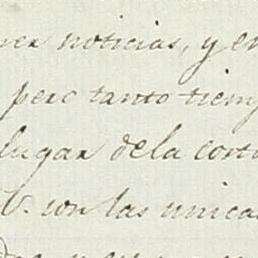 ner noticias, y en
pero tanto tiemp
lugar dela corte
V. son las unicas